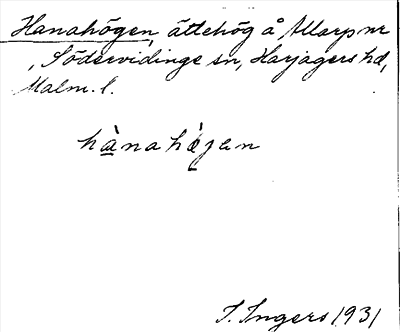 Hanahögen, ättehög å Allarp nr
, Södervidinge sn, Harjagers hd,
Malm. l.
hànahǿjen
I. Ingers 1931